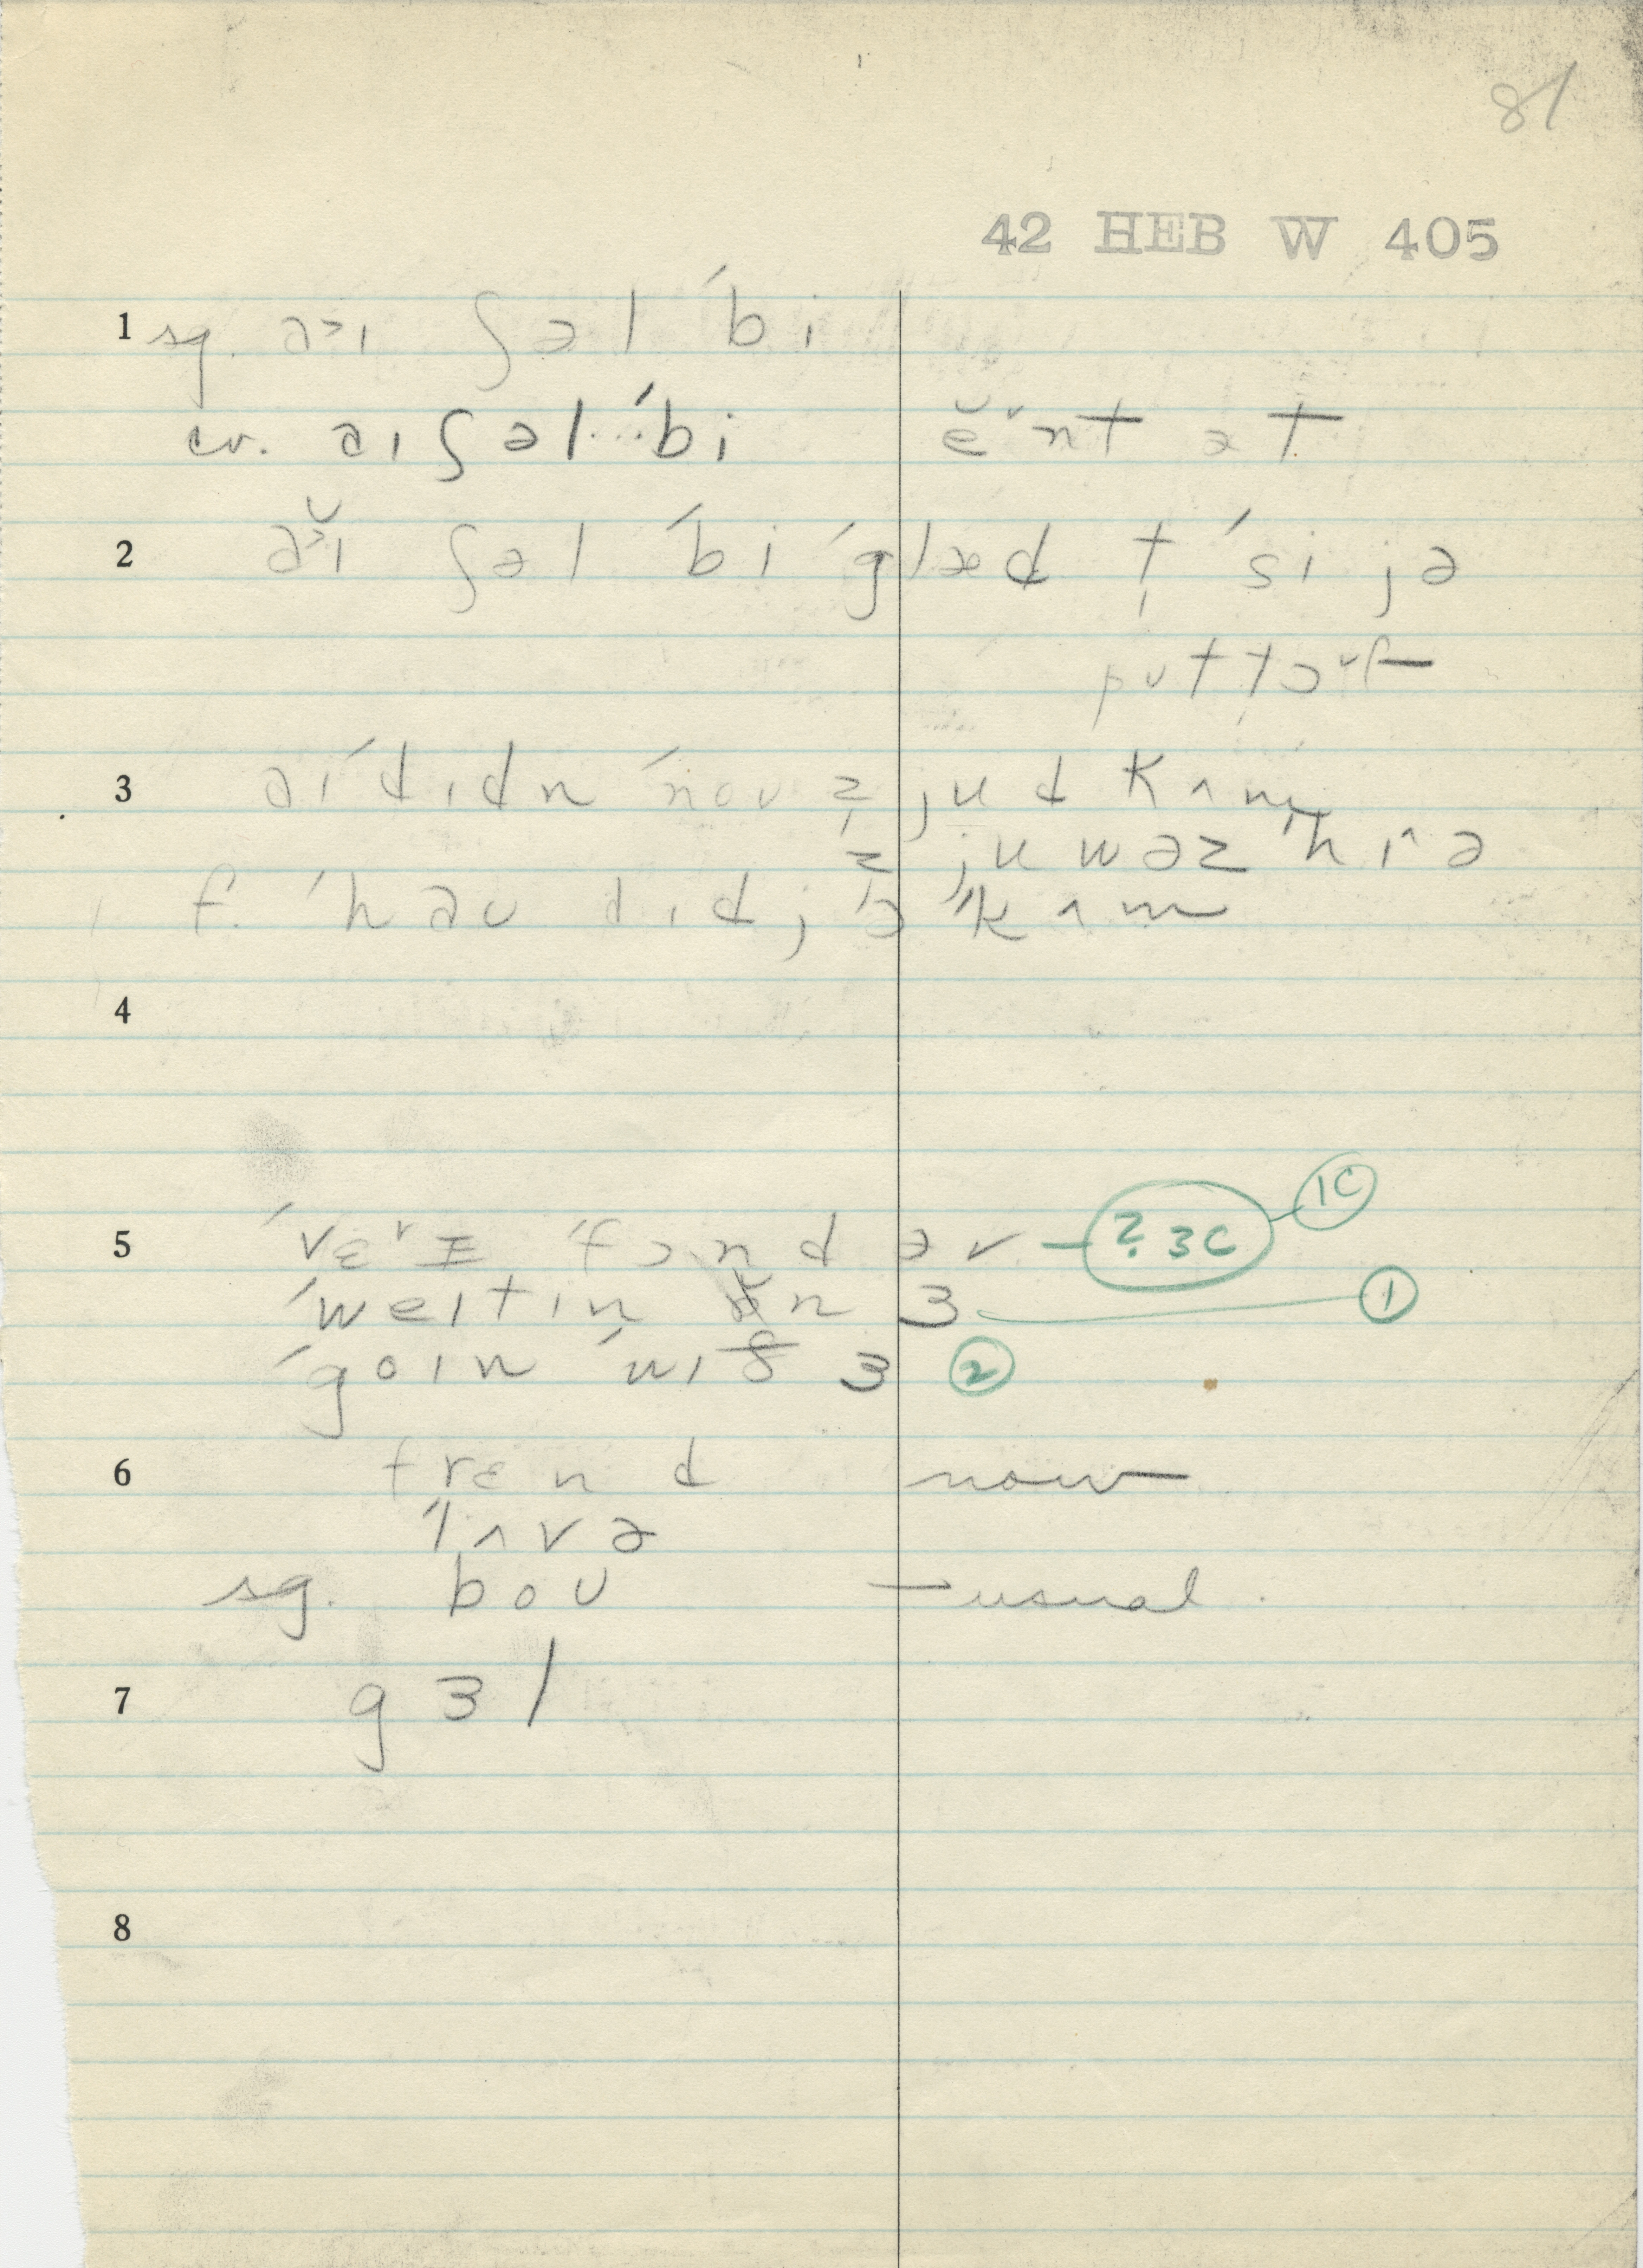 81
42 HEB W 405
1 sg. a˃ɪ ʃəl ˈbi
cr. aɪ ʃəl ˈbi ĕ˅nt ət
2 ă˃ɪ ʃəl ˈbi ˈglæd t̩ ˈsi jə
put t̩ɔ˅f
3 aɪ ˈdɪdn ˈnoʊ z̩ jud kʌm
z̩ ju wəz ˈhɪ^ə
f. ˈhaʊ dɪdjə ˈkʌm
4
5 ˈvɛ˅rɪ ˈfɔnd əv — ? 3C 1C
ˈweɪtɪn ɒn ɜ 1
ˈgoɪn ˈwɪð ɜ 2
6 frɛnd now
ˈlʌvə
sg. boʊ — usual
7 gɜl
8